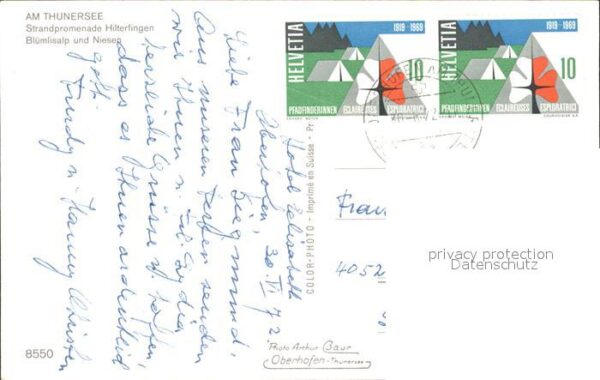 AM THUNERSEE
Strandpromenade Hilterfingen
Blümlisalp und Niesen
HELVETIA
1919-1969
10
PFADFINDERINNEN ECLAIREUSES ESPLORATRICI
HELVETIA
1919-1969
10
PFADFINDERINNEN ECLAIREUSES ESPLORATRICI
Hotel Elisabeth
Oberhofen, 30. VI 72
Liebe Frau Siegmund,
Aus unseren Ferien senden
wir Ihnen u.
herzliche Grüsse u. hoffen,
dass es Ihnen ordentlich
geht.
Trudy u. Hanny Christen
COLOR-PHOTO - Imprimé en Suisse - Pr
Photo Arthur Baur
Oberhofen-Thunersee
Frau
4052
privacy protection
Datenschutz
8550